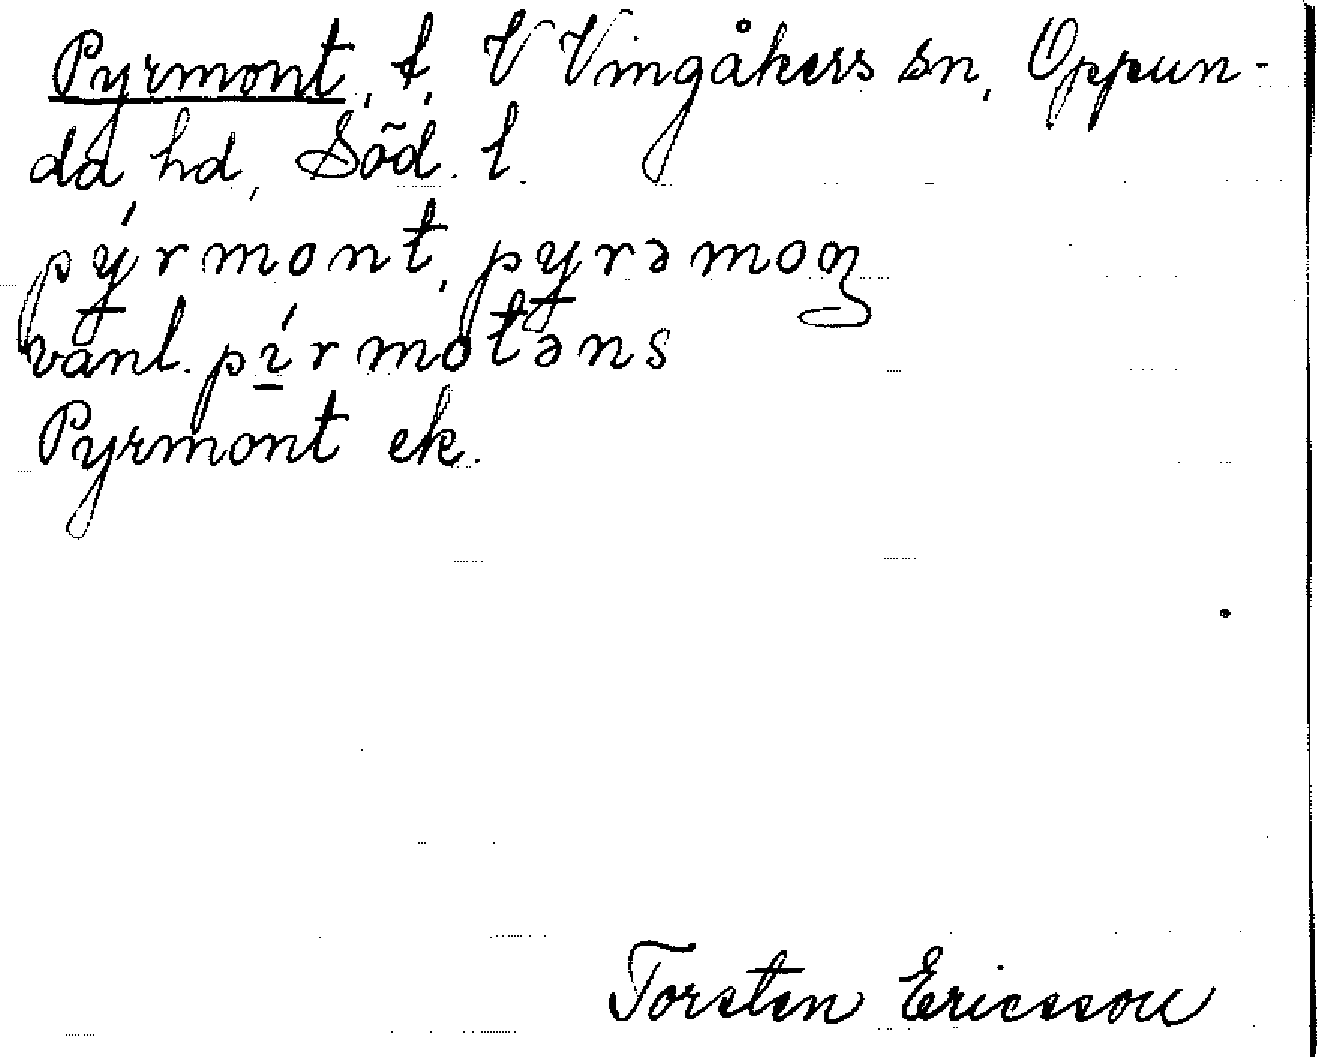 Pyrmont, t, V Vingåkers sn, Oppun-
da hd, Söd. l.
pýrmont, pyrəmoŋ
vanl. pírmotəns
Pyrmont ek.
Torsten Ericsson